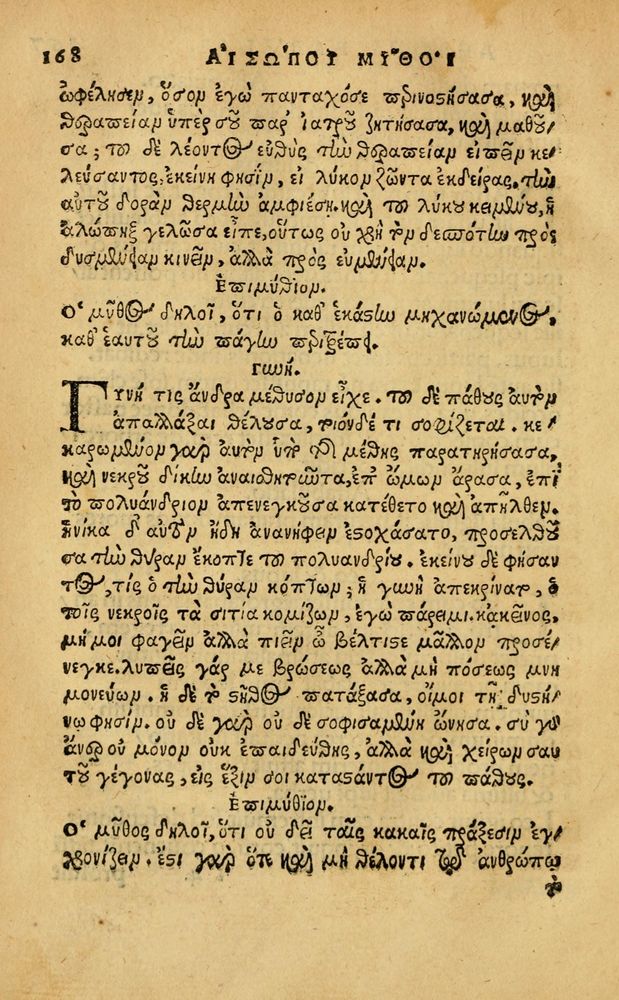 168 ΑΙΣΩΠΟΥ ΜΥΘΟΙ
ὠφέλησεν, ὅσον ἐγὼ πανταχόσε περινοστήσασα, καὶ
θεραπείαν ὑπὲρ σοῦ παρ' ἰατροῦ ζητήσασα, καὶ μαθοῦ-
σα; τοῦ δὲ λέοντος εὐθὺς τὴν θεραπείαν εἰπεῖν κε-
λεύσαντος, ἐκείνη φησίν, εἰ λύκον ζῶντα ἐκδείρας, τὴν
αὐτοῦ δορὰν θερμὴν ἀμφιέση. καὶ τοῦ λύκου κειμένου, ἡ
ἀλώπηξ γελῶσα εἶπε, οὕτως οὐ χρὴ τὸν δεσπότην πρὸς
δυσμένειαν κινεῖν, ἀλλὰ πρὸς εὐμένειαν.
Ἐπιμύθιον.
Ὁ μῦθος δηλοῖ, ὅτι ὁ καθ' ἑκάστην μηχανώμενος,
καθ' ἑαυτοῦ τὴν πάγην περιτρέπει.
Γυνή.
Γυνή τις ἄνδρα μέθυσον εἶχε. τοῦ δὲ πάθους αὐτὸν
ἀπαλλάξαι θέλουσα, τοιόνδέ τι σοφίζεται. κε-
καρωμένον γὰρ αὐτὸν ὑπὸ τῆς μέθης παρατηρήσασα,
καὶ νεκροῦ δίκην ἀναισθητοῦντα, ἐπ' ὤμων ἄρασα, ἐπὶ
τὸ πολυάνδριον ἀπενεγκοῦσα κατέθετο καὶ ἀπῆλθεν.
ἡνίκα δ' αὐτὸν ἤδη ἀνανήφειν ἐστοχάσατο, προσελθοῦ
σα τὴν θύραν ἔκοπτε τοῦ πολυανδρίου. ἐκείνου δὲ φήσαν
τος, τίς ὁ τὴν θύραν κόπτων; ἡ γυνὴ ἀπεκρίνατο, ὁ
τοῖς νεκροῖς τὰ σιτία κομίζων, ἐγὼ πάρειμι. κἀκεῖνος,
μή μοι φαγεῖν ἀλλὰ πιεῖν ὦ βέλτιστε μᾶλλον προσέ-
νεγκε. λυπεῖς γάρ με βρώσεως ἀλλὰ μὴ πόσεως μνη
μονεύων. ἡ δὲ τὸ στῆθος πατάξασα, οἴμοι τῇ δυστή-
νῳ φησίν. οὐ δὲ γὰρ οὐ δὲ σοφισαμένη ὤνησα. σὺ γὰρ
ἄνερ οὐ μόνον οὐκ ἐπαιδεύθης, ἀλλὰ καὶ χείρων σαυ
τοῦ γέγονας, εἰς ἕξιν σοι καταστάντος τοῦ πάθους.
Ἐπιμύθιον.
Ὁ μῦθος δηλοῖ, ὅτι οὐ δεῖ ταῖς κακαῖς πράξεσιν ἐγ-
χρονίζειν. ἔστι γὰρ ὅτε καὶ μὴ θέλοντι τῷ ἀνθρώπῳ
τὸ